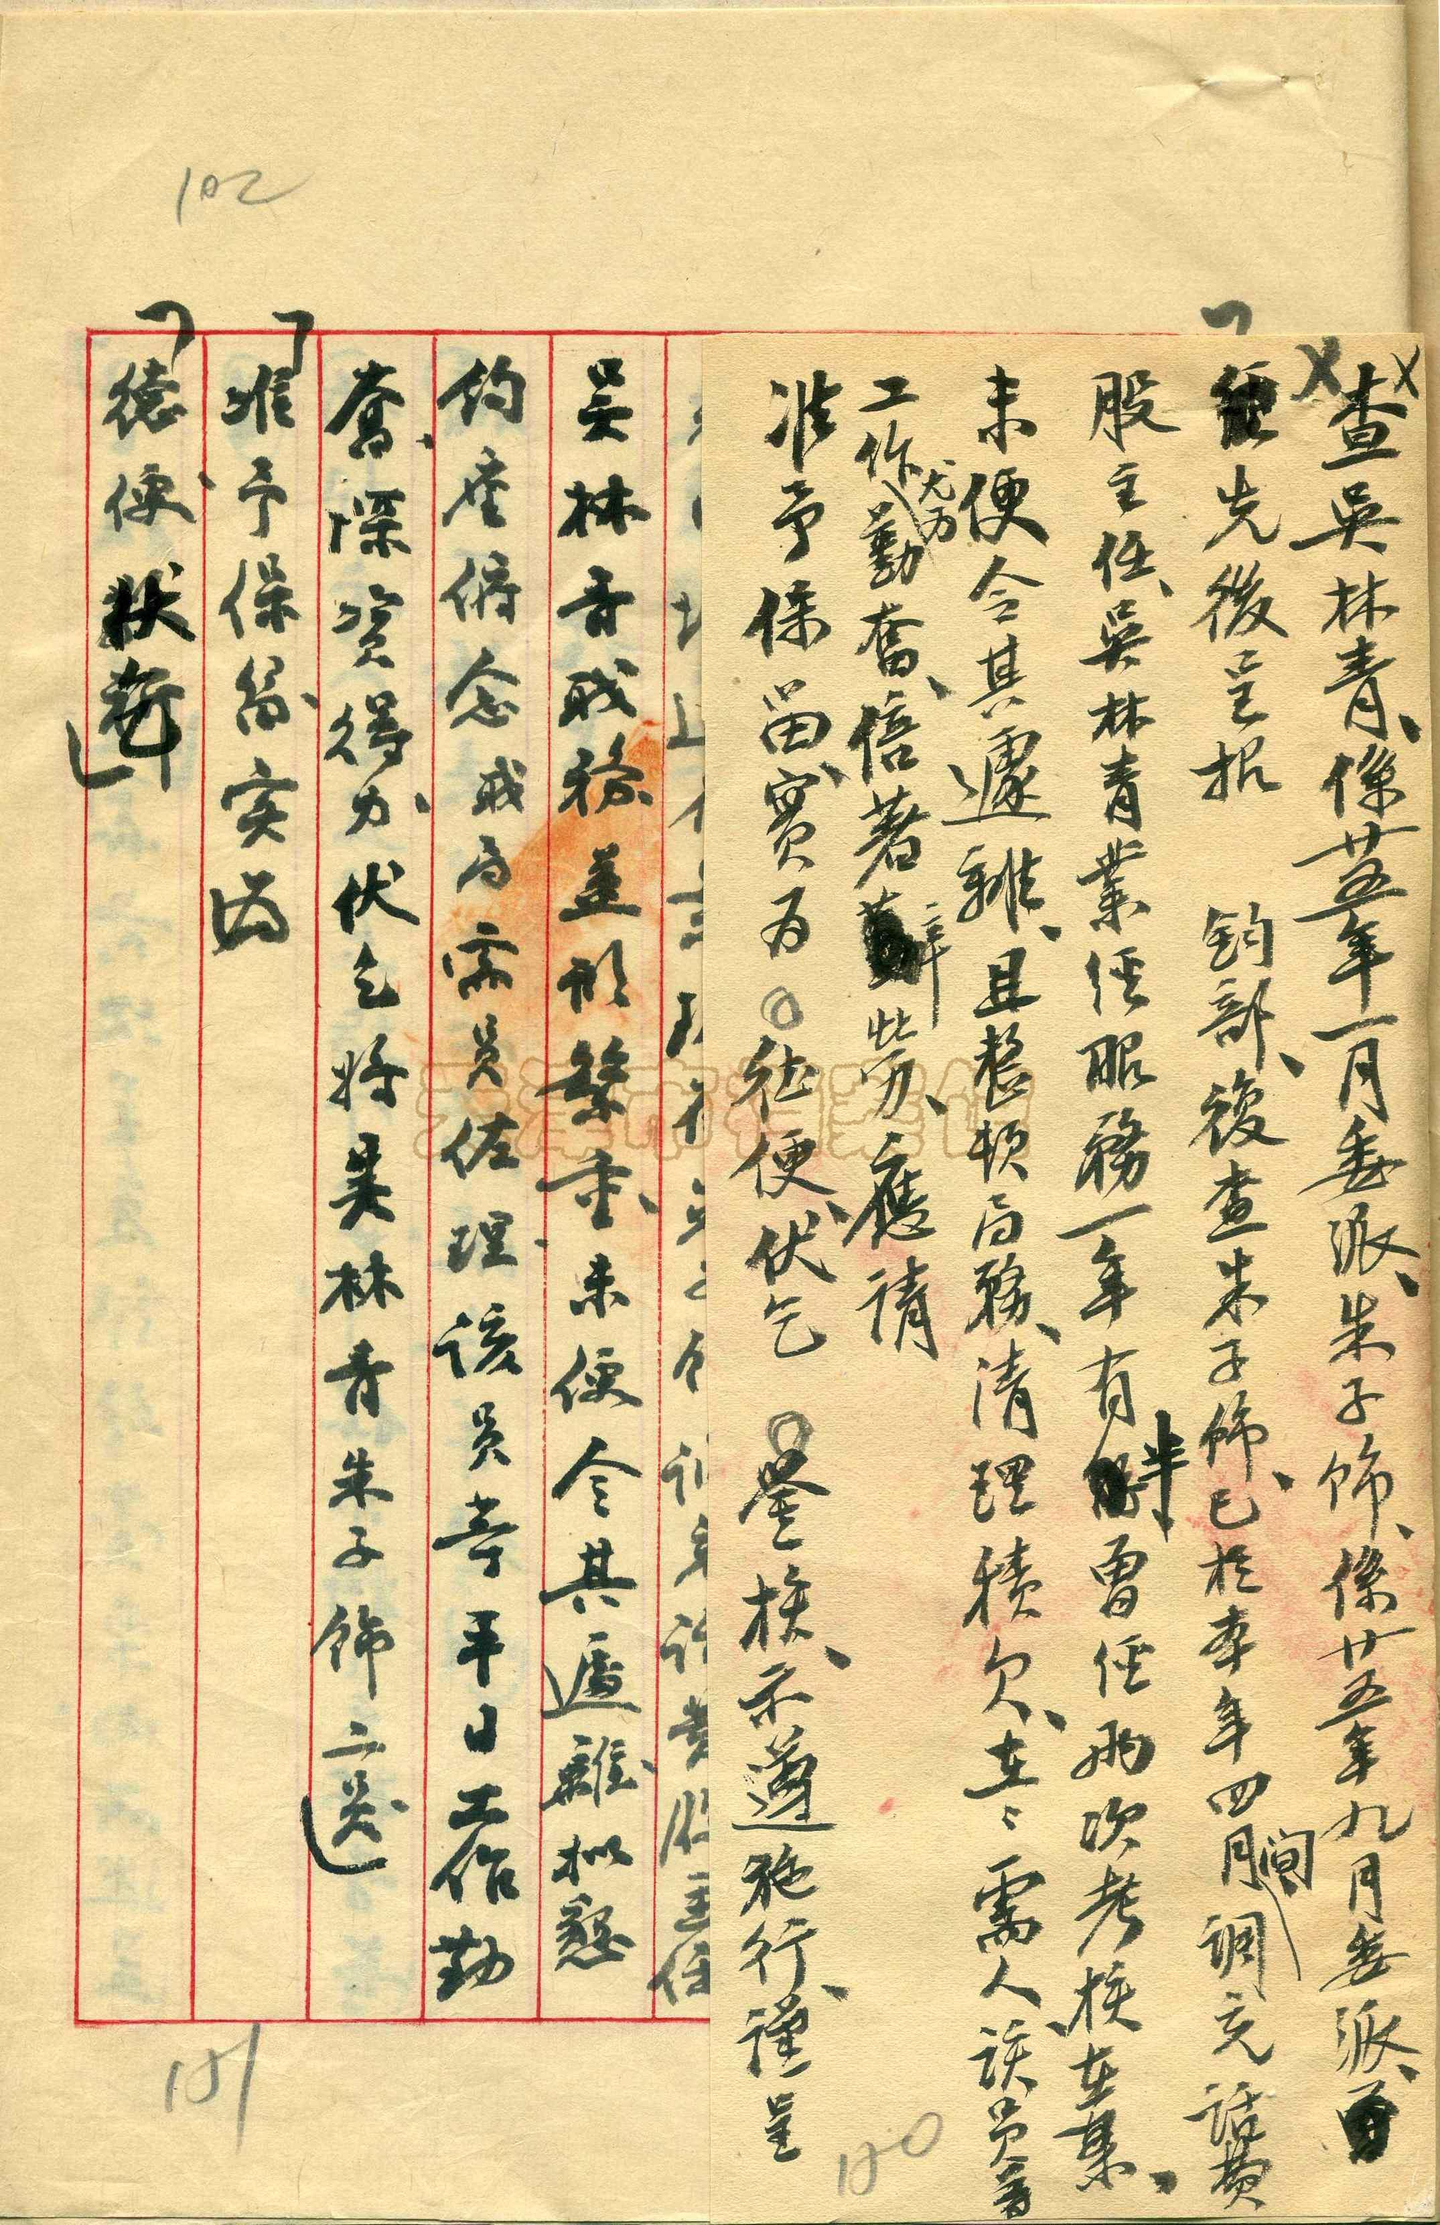 查吳林青、係廿五年一月委派、朱子飾、係廿五年九月委派、
經先後呈報 鈞部、復查朱子飾、已於本年四月間調充話費
股主任、吳林青業經服務一年有半曾經兩次考核在案、
未便令其遽離、且整頓局務、清理積欠、在在需人、該員等
工作尤力勤奮、倍著辛勞、應請
准予保留、實為 德便、伏乞 鑒核、示遵施行、謹呈
吳林青職務並形繁重、未便令其遽離擬懇
鈞座俯念職局需員佐理、該員等平日工作勤
奮、深資得力、伏乞將吳林青朱子飾二員、
准予保留、實為
德便
102
101
100
天津市档案馆